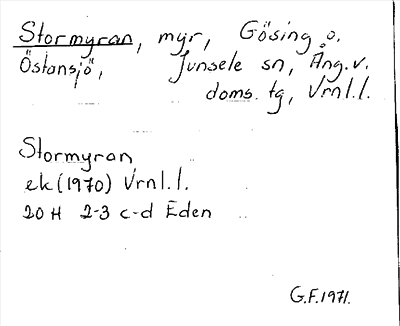 Stormyran, myr, Gösing o.
Östansjö, Junsele sn, Ång.v.
doms. tg, Vrnl.l.
Stormyran
ek (1970) Vrnl.l.
20 H 2-3 c-d Eden
G.F. 1971.